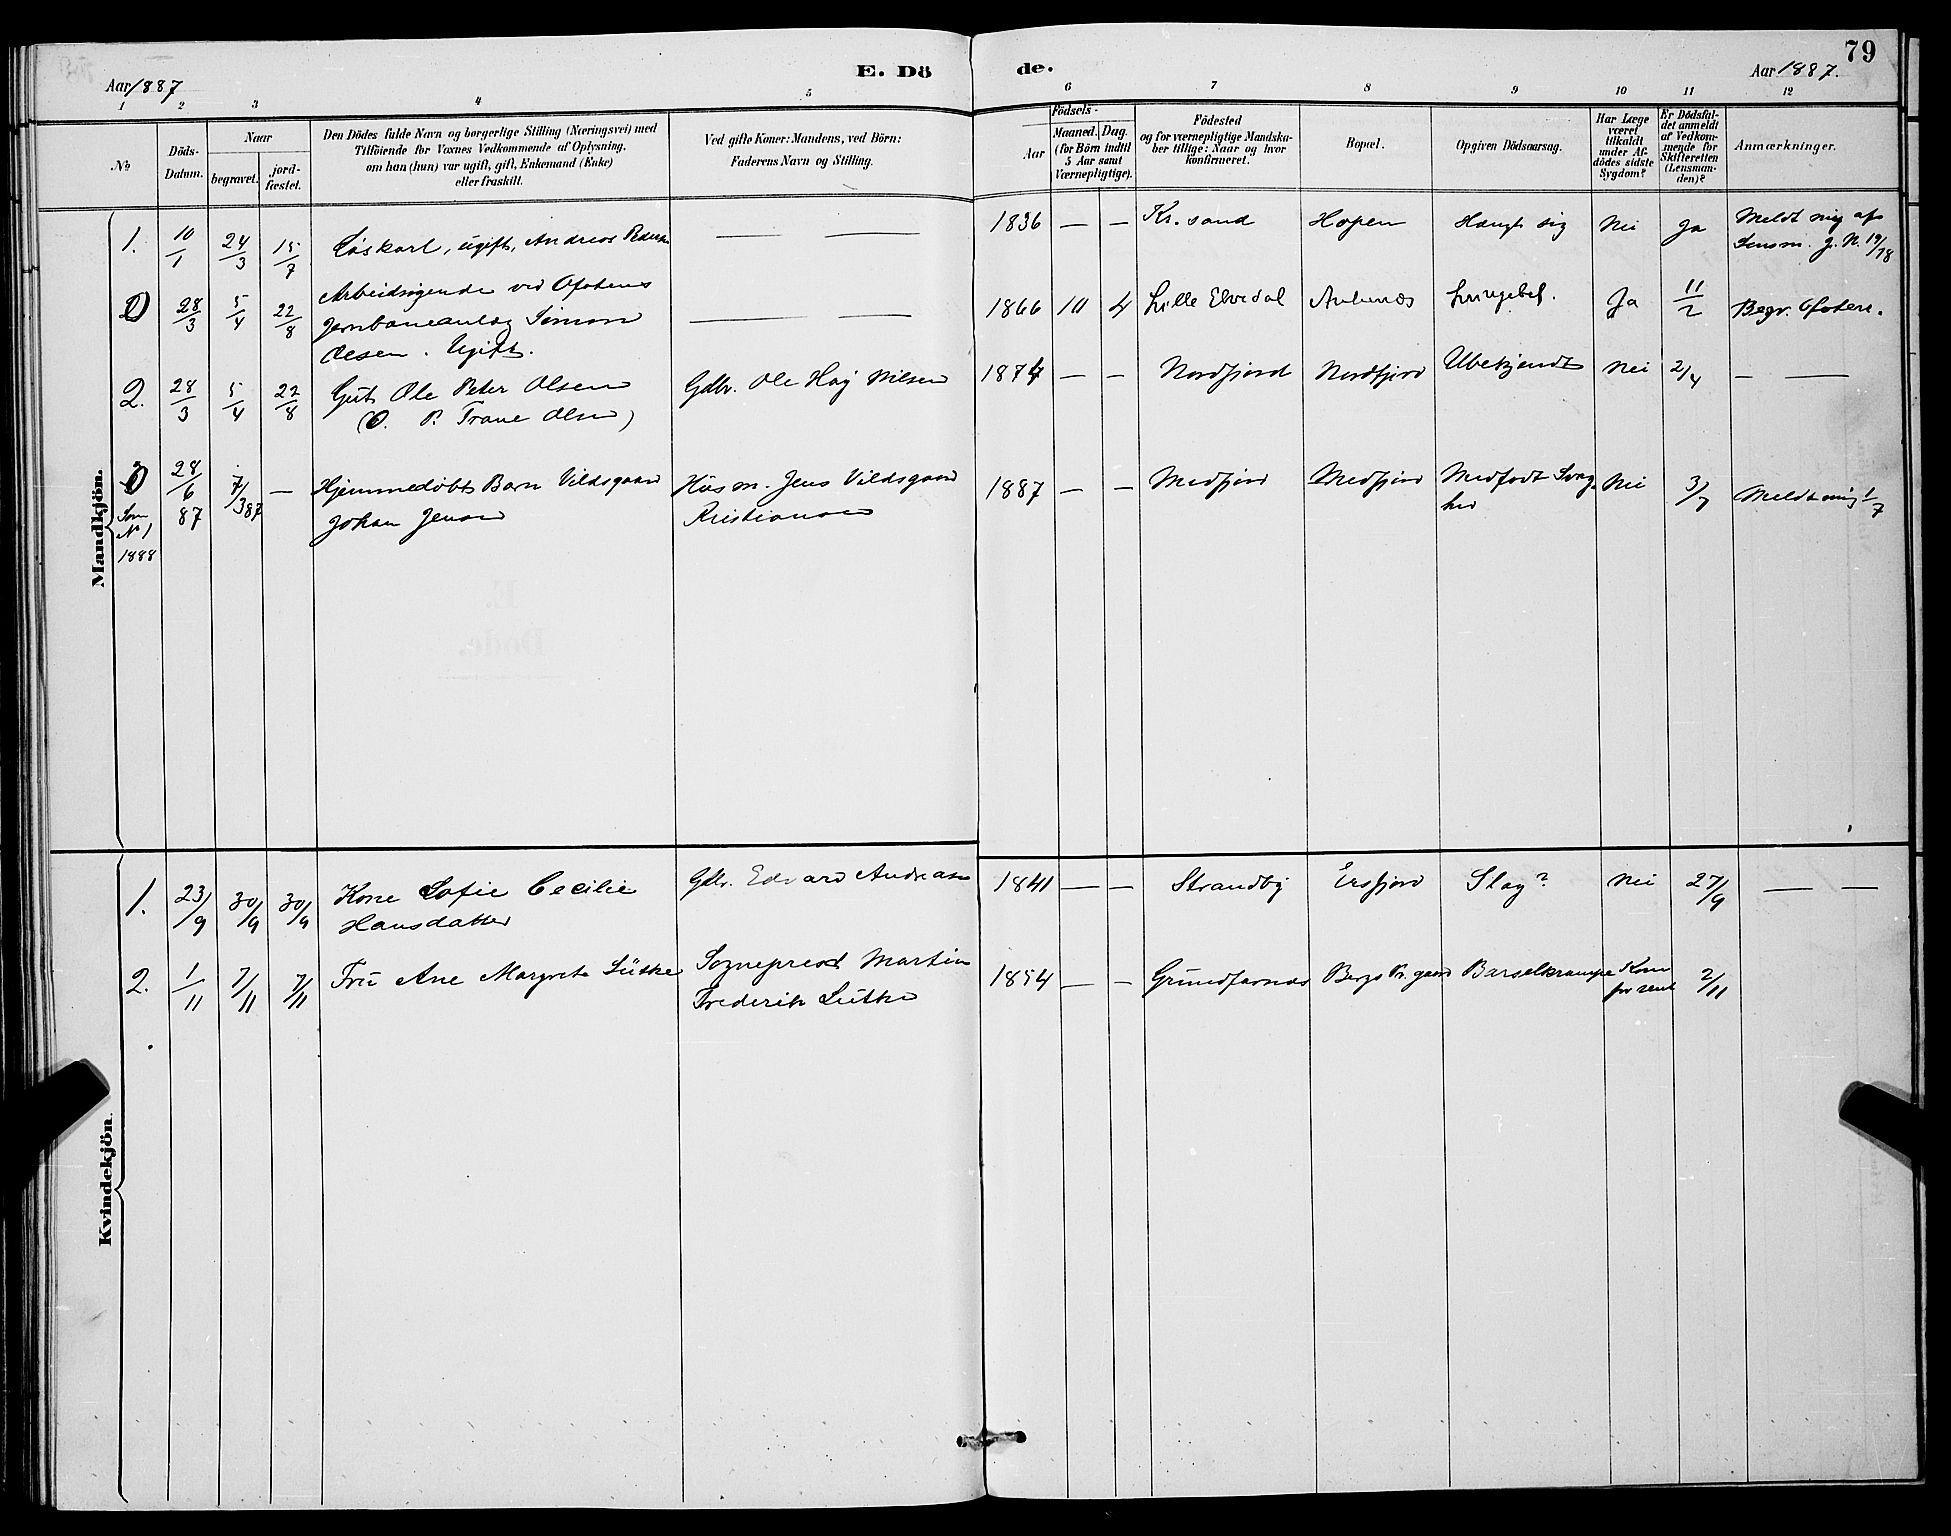 79
Aar 1887
E. Dö
de.
Aar 1887.
1 2 3 4 5 6 7 8 9 10 11 12
No
Döds-
Datum.
Naar
begravet.
jord-
fæstet.
Den Dödes fulde Navn og borgerlige Stilling (Næringsvei) med
Tilföiende for Voxnes Vedkommende af Oplysning,
om han (hun) var ugift, gift, Enkemand (Enke)
eller fraskilt.
Ved gifte Koner: Mandens, ved Börn:
Faderens Navn og Stilling.
Födsels-
Aar
Maaned. Dag.
(for Börn indtil
5 Aar samt
Værnepligtige).
Födested
og for værnepligtige Mandska-
ber tillige: Naar og hvor
konfirmeret.
Bopæl.
Opgiven Dödsaarsag.
Har Læge
været
tilkaldt
under Af-
dödes sidste
Sygdom?
Er Dödsfal-
det anmeldt
af Vedkom-
mende for
Skifteretten
(Lensman-
den)?
Anmærkninger.
Mandkjön.
1. 10/1 24/3 15/7 Löskarl, ugift, Andreas Peders — — 1836 — — Kr. sand Hopen Hængt sig Nei Ja Meldt mig af
Lensm. J. N. 19/78
0 28/3 5/4 22/8 Arbeidsøgende ved Ofotens
Jernbaneanlæg Simon
Olsen. Ugift.
— — 1866 10 4 Lille Elvedal Ankenæs Lungebet. Ja 11/2 Begr. Ofoten.
2. 28/3 5/4 22/8 Gut Ole Peter Olsen
(O. P. Trane Olsen)
Gdbr. Ole Høj Nilsen 1874 — — Nordfjord Nordfjord Ubekjendt Nei 2/4 — —
0 28/6 87 7/3 87 — Hjemmedøbt Barn Vildsgaard
Johan Jenson
Husm. Jens Vildsgaard
Kristianson
1887 — — Medfjord Medfjord Medfødt Svag-
hed
Nei 3/7 Meldt mig 1/7
Som
No 1
1888
Kvindekjön.
1. 23/9 30/9 30/9 Kone Sofie Cecilie
Hansdatter
Gbr. Edvard Andreasen 1841 — — Strandby Ersfjord Slag? Nei 27/9 — —
2. 1/11 7/11 7/11 Fru Ane Margrete Lütke
Sogneprest Martin
Frederik Lütke
1854 — — Grundfarnæs Bergs Pr. gaard Barselkrampe Kom
for sent
2/11